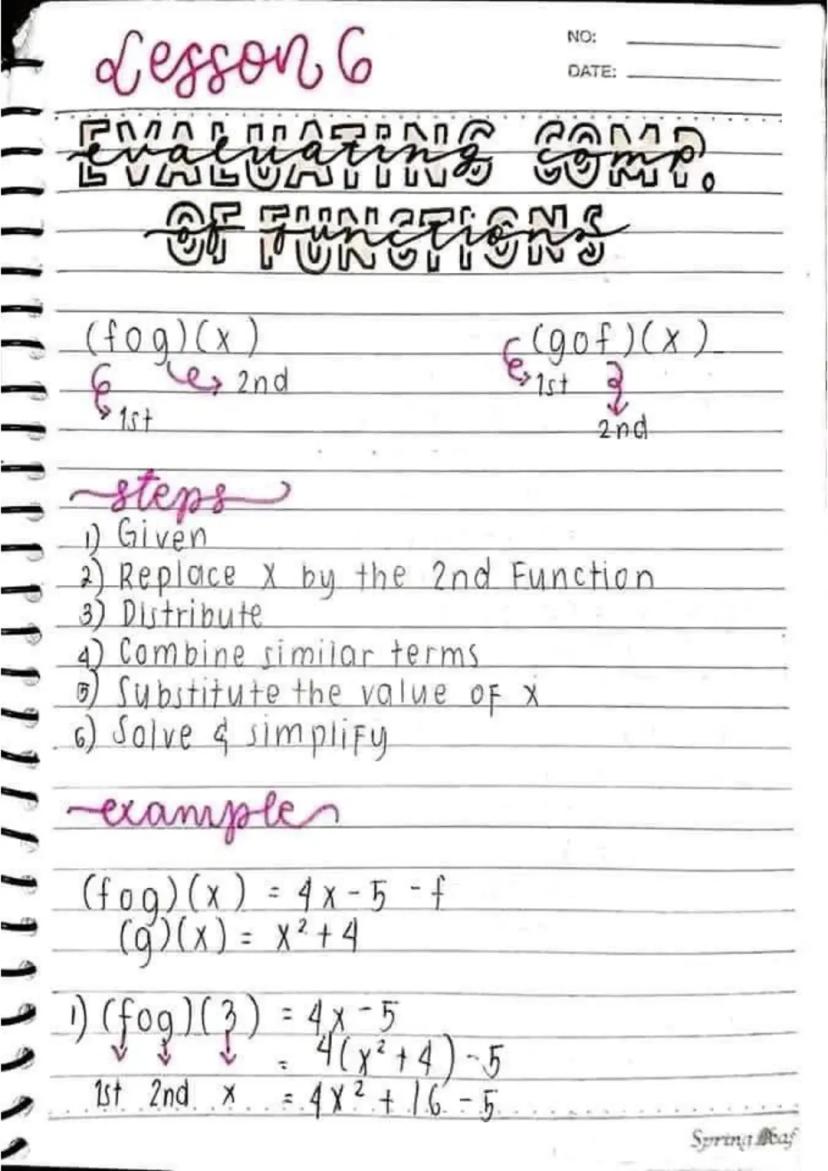 Lesson 6
NO:
DATE:
EVALUATING COMP.
evaluating comp.
OF FUNCTIONS
of functions
(fog)(x) (gof)(x)
2nd 1st
1st 2nd
steps
1) Given
2) Replace X by the 2nd Function
3) Distribute
4) Combine similar terms
5) Substitute the value of x
6) Solve & simplify
example
(fog)(x) = 4x - 5 - f
(g)(x) = x² + 4
1) (fog)(3) = 4x - 5
= 4(x² + 4) - 5
1st 2nd x = 4x² + 16 - 5
Spring Leaf